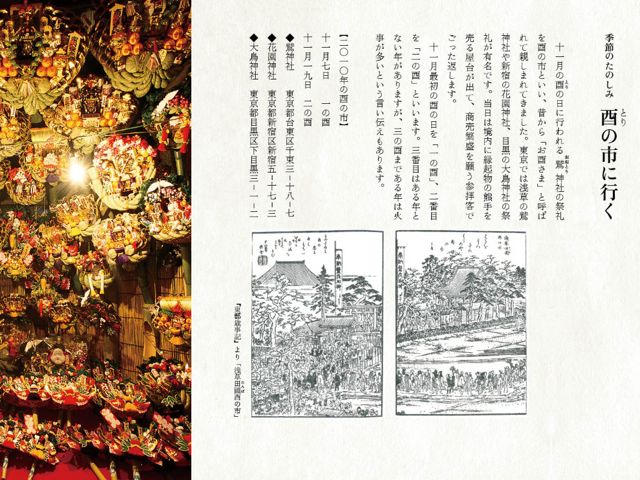 季節のたのしみ
酉の市に行く
とり
十一月の酉の日に行われる、鷲神社の祭礼
を酉の市といい、昔から「お酉さま」と呼ば
れて親しまれてきました。東京では浅草の鷲
神社や新宿の花園神社、目黒の大鳥神社の祭
礼が有名です。当日は境内に縁起物の熊手を
売る屋台が出て、商売繁盛を願う参拝客で
ごった返します。
十一月最初の酉の日を「一の酉」、二番目
を「二の酉」といいます。三番目はある年と
ない年がありますが、三の酉まである年は火
事が多いという言い伝えもあります。
【二〇一〇年の酉の市】
十一月七日 一の酉
十一月一九日 二の酉
◆鷲神社 東京都台東区千束三-一八-七
◆花園神社 東京都新宿区新宿五-一七-三
◆大鳥神社 東京都目黒区下目黒三-一-二
『東都歳事記』より「浅草田圃酉の市」